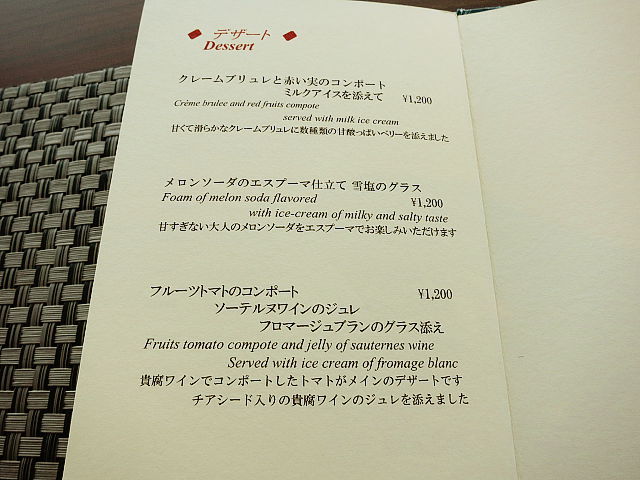 ◆ デザート ◆
Dessert
クレームブリュレと赤い実のコンポート
ミルクアイスを添えて ¥1,200
Crème brulee and red fruits compote
served with milk ice cream
甘くて滑らかなクレームブリュレに数種類の甘酸っぱいベリーを添えました
メロンソーダのエスプーマ仕立て 雪塩のグラス
Foam of melon soda flavored ¥1,200
with ice-cream of milky and salty taste
甘すぎない大人のメロンソーダをエスプーマでお楽しみいただけます
フルーツトマトのコンポート ¥1,200
ソーテルヌワインのジュレ
フロマージュブランのグラス添え
Fruits tomato compote and jelly of sauternes wine
Served with ice cream of fromage blanc
貴腐ワインでコンポートしたトマトがメインのデザートです
チアシード入りの貴腐ワインのジュレを添えました